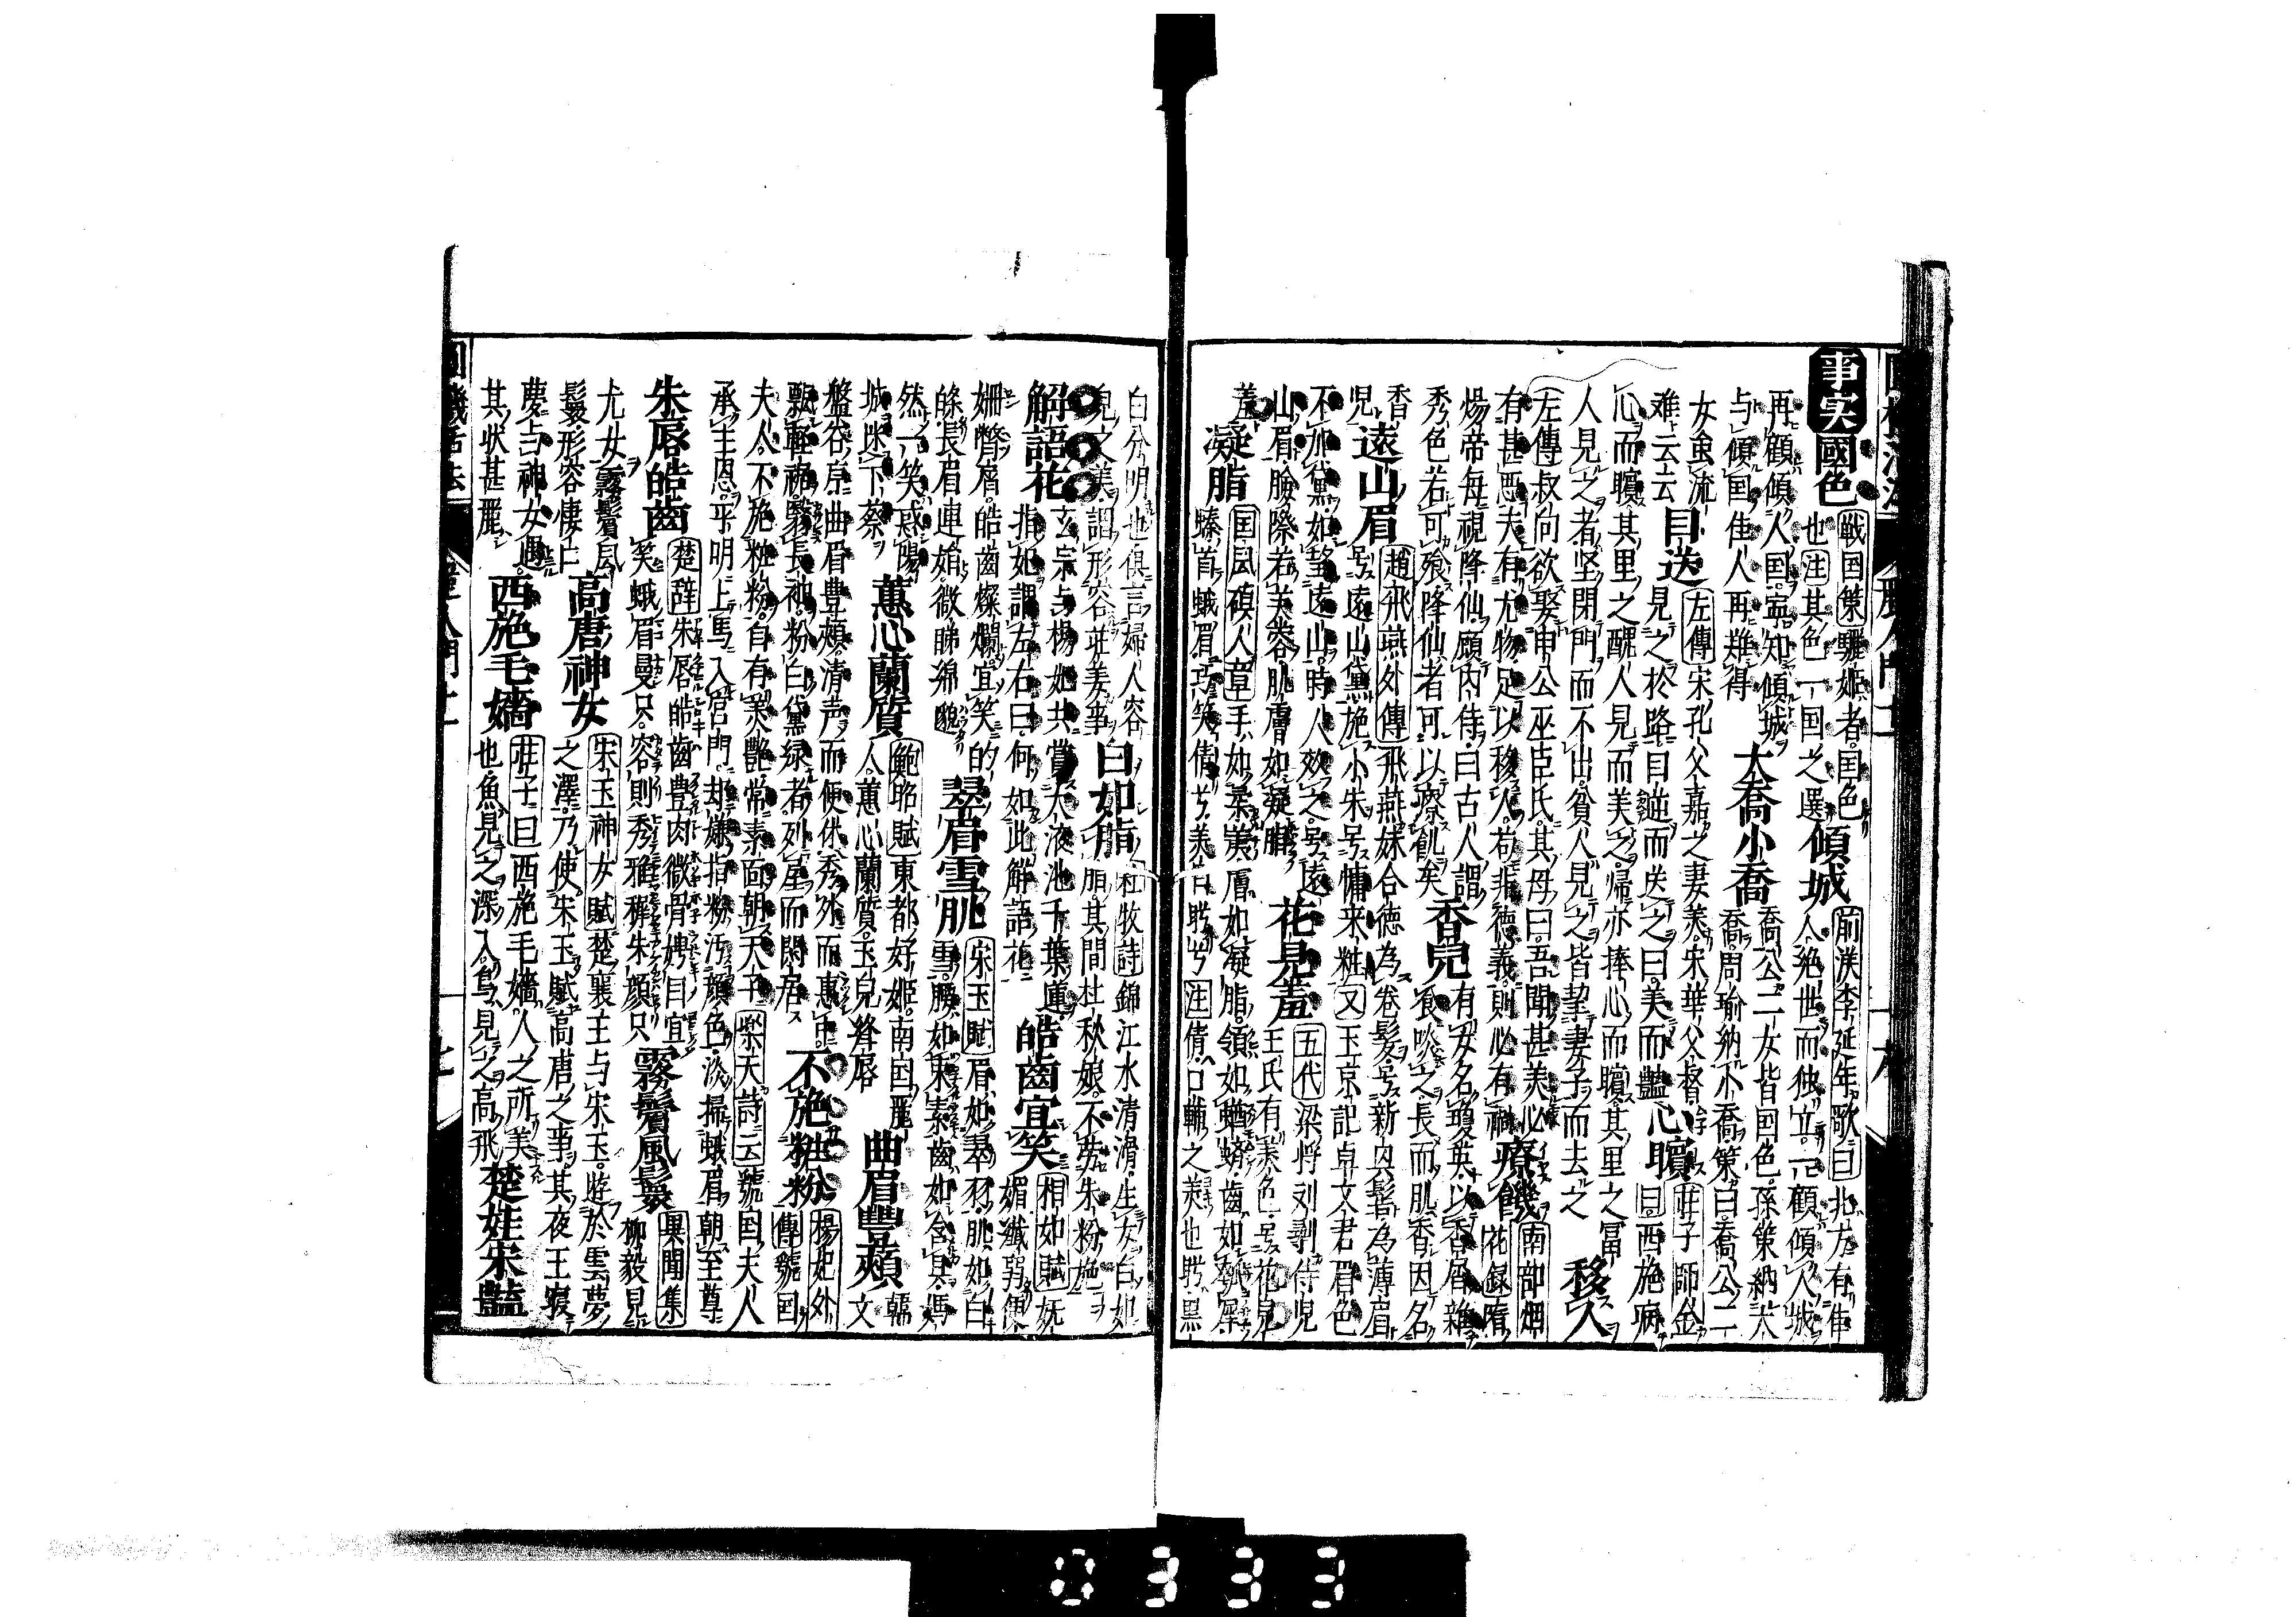 事実 國色 戦国策驪姫者国色
也注其色一国之選 傾城 前漢李延年歌曰北方有佳
人絶世而独立一顧傾人城
再顧傾人国寧知傾城
与傾国佳人再難得 大喬小喬 喬公二女皆国色孫策納大
喬周瑜納小喬策曰喬公二
女虽流
难云云 目送 左傳宋孔父嘉之妻美宋華父督
見之於路目逆而送之曰美而艶 心矉 荘子師金
曰西施病
心而矉其里之醜人見而美之帰亦捧心而矉其里之冨
人見之者坚閉門而不出貧人見之皆挈妻子而去之 移人
左傳叔向欲娶申公巫臣氏其母曰吾聞甚美必
有甚悪夫有尤物足以移人苟非徳義則必有禍 療饑 南部烟
花録隋
煬帝毎視降仙顧内侍曰古人謂
秀色若可飧降仙者可以療飢矣 香兒 有女名瓊英以香屑雜
食啖之長而肌香因名
香
児 遠山眉 趙飛燕外傳飛燕妹合徳為卷髪号新兴髻為薄眉
号遠山黛施小朱号慵来粧又玉京記卓文君眉色
不加黛如望遠山時人效之号遠
山眉臉際若芙蓉肌膚如凝脂 花見羞 五代梁将刘鄩侍児
王氏有美色号花見
羞 凝脂 国風碩人章手如柔荑膚如凝脂領如蝤蠐齒如瓠犀
螓首蛾眉巧笑倩兮美目盻兮注倩口輔之美也盻黒
白分明也俱言婦人容
皃之美謂形容荘姜事 白如脂 杜牧詩錦江水清滑生女白如
脂其間杜秋娘不劳朱粉施
解語花 玄宗与楊妃共賞太液池千葉蓮
指妃謂左右曰何如此解語花 皓齒宜笑 相如賦妩
媚孅弱便
姍嫳屑皓齒燦爛宜笑的
皪長眉連娟微睇綿藐 翠眉雪肌 宋玉賦眉如翠羽肌如白
雪腰如束素齒如含貝嫣
然一笑惑陽
城迷下蔡 蕙心蘭質 鮑昭賦東都好姫南国麗
人蕙心蘭質玉皃絳唇 曲眉豊頰 韓
文
盤谷序曲眉豊頰清声而便体秀外而惠中
飄軽裾翳長袖粉白黛緑者列屋而閑居 不施粧粉 楊妃外
傳虢国
夫人不施粧粉自有美艶常素面朝天子楽天詩云虢国夫人
承主恩平明上馬入宮門却嫌指粉汚顔色淡掃蛾眉朝至尊
朱唇皓齒 楚辞朱唇皓齒豊肉微骨娉目宜
笑蛾眉曼只容則秀雅穉朱顔只 霧鬢風鬟 異聞集
柳毅見
尤女霧鬢風
鬟形容悽占 高唐神女 宋玉神女賦楚襄王与宋玉遊於雲夢
之澤乃使宋玉賦高唐之事其夜王寝
夢与神女遇
其状甚麗 西施毛嬙 荘子曰西施毛嬙人之所美
也魚見之深入鳥見之高飛 楚娃宋艶
0333